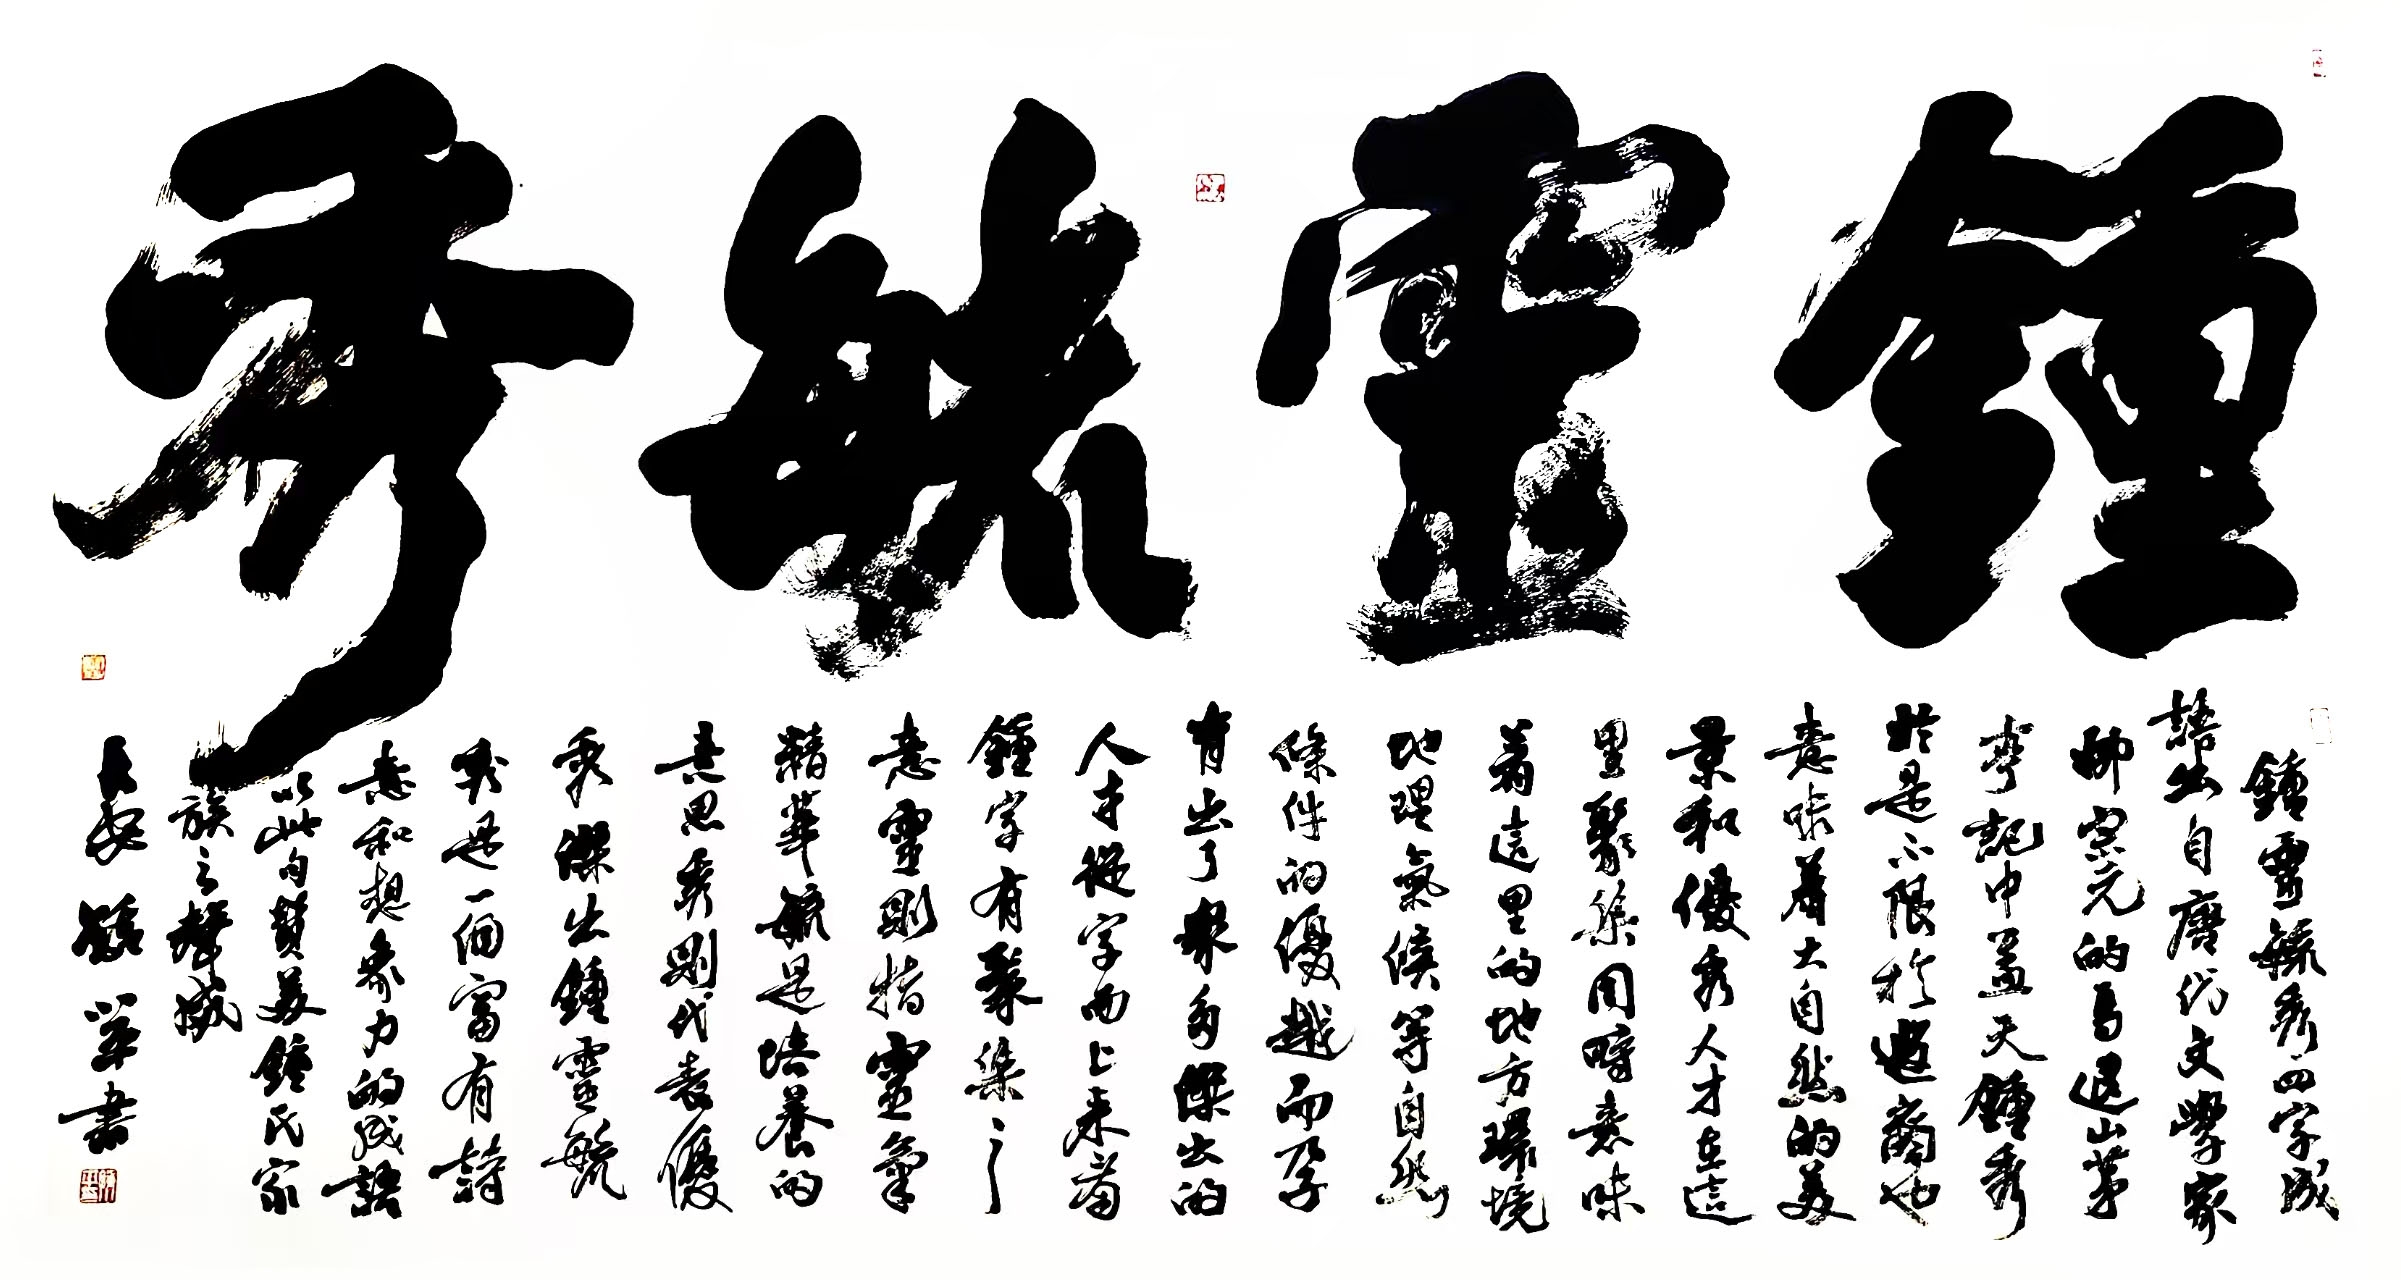 鍾靈毓秀
鍾靈毓秀四字成
語出自唐代文學家
柳宗元的馬退山茅
亭記中蓋天鍾秀
於是不限於遐裔也
意味着大自然的美
景和優秀人才在這
里聚集同時意味
着這里的地方環境
地理氣候等自然
條件的優越而孕
育出了眾多傑出的
人才從字面上來看
鍾字有聚集之
意靈則指靈氣
精華毓是培養的
意思秀則代表優
秀傑出鍾靈毓
秀是一個富有詩
意和想象力的成語
以此句贊美鍾氏家
族之聲威
長安 華書